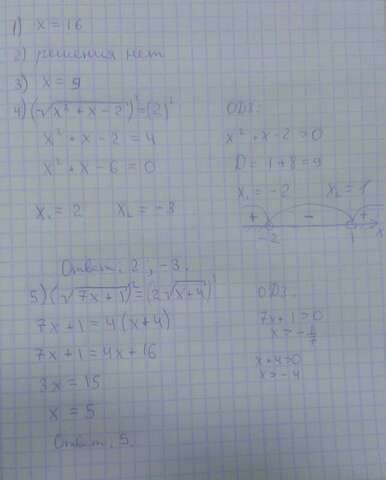 1) x = 16
2) решения нет
3) x = 9
4) (√x² + x - 2)² = (2)²
x² + x - 2 = 4
x² + x - 6 = 0
x₁ = 2 x₂ = -3
ОДЗ:
x² + x - 2 > 0
D = 1 + 8 = 9
x₁ = -2 x₂ = 1
+ - +
-2 1 x
Ответ. 2, -3.
5) (√7x + 1)² = (2√x+4)²
7x + 1 = 4(x + 4)
7x + 1 = 4x + 16
3x = 15
x = 5
Ответ. 5.
ОДЗ.
7x + 1 > 0
x > -1/7
x + 4 > 0
x > -4